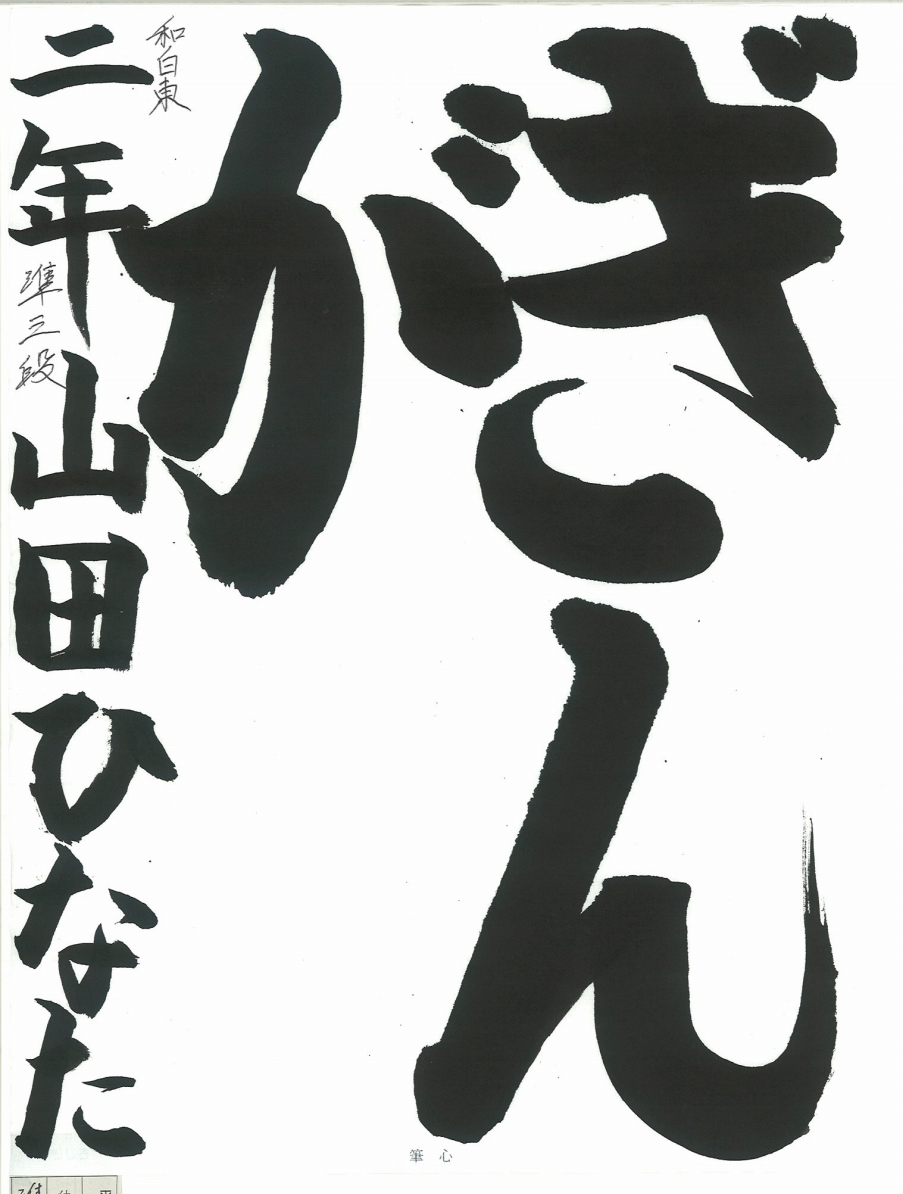 ぎん
が
和白東
二年山田ひなた
準三段
筆心